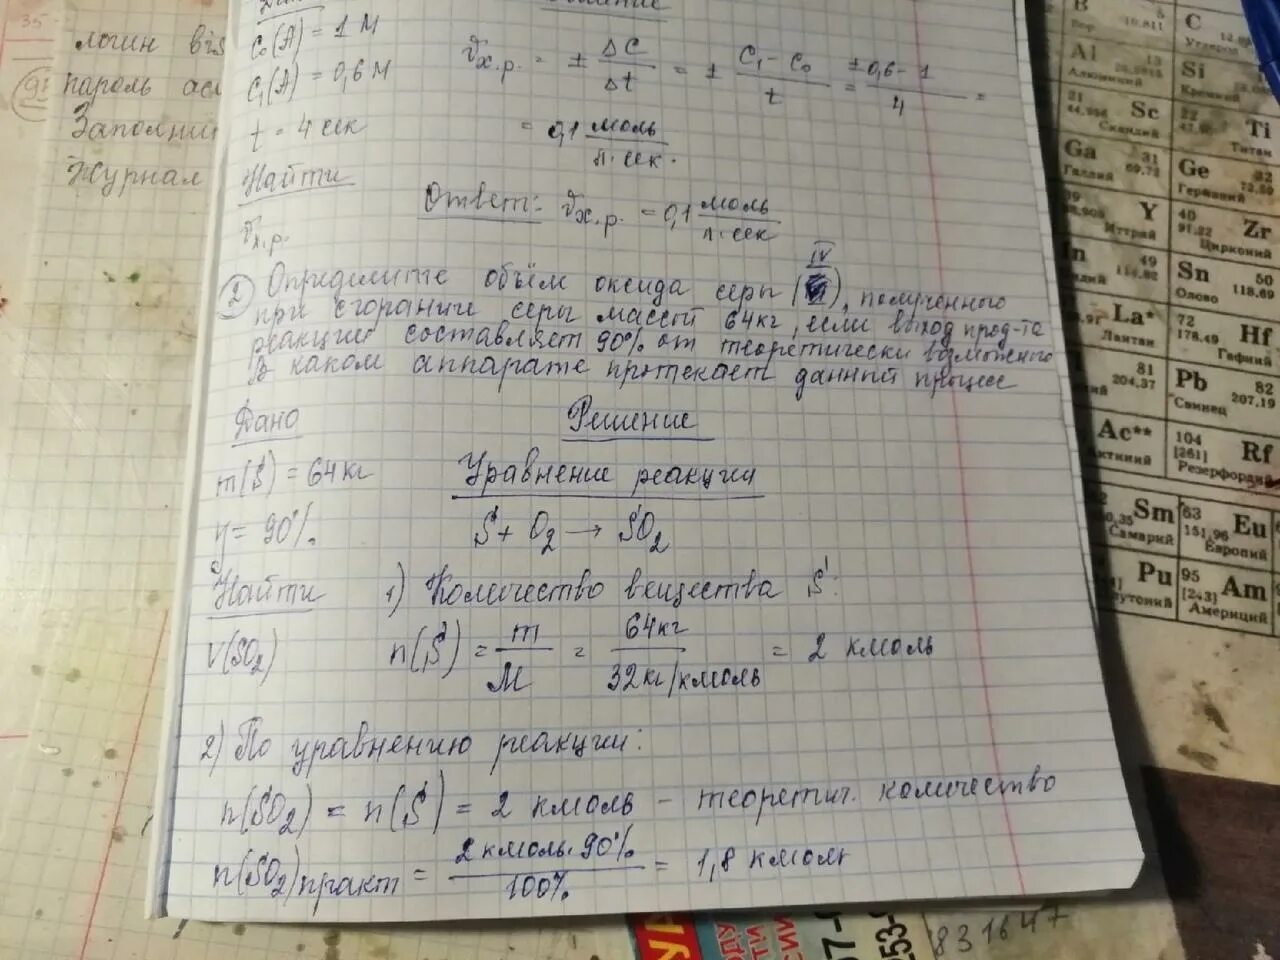 35
логин
пароль
Заполни
Журнал
Решение
C₀(A) = 1 М
C₁(A) = 0,6 М
t = 4 сек
Найти
Vх.р.
Vх.р. = ± ΔC/Δt = ± C₁ - C₀/t = ± 0,6 - 1/4 =
= 0,1 моль/л·сек.
Ответ: Vх.р. = 0,1 моль/л·сек
2) Определите объём оксида серы (IV), полученного
при сгорании серы массой 64 кг, если выход прод-та
реакции составляет 90% от теоретически возможного
В каком аппарате протекает данный процесс
Дано
m(S) = 64 кг
η = 90%.
Найти
V(SO₂)
Решение
Уравнение реакции
S + O₂ → SO₂
1) Количество вещества S:
n(S) = m/M = 64 кг/32 кг/кмоль = 2 кмоль
2) По уравнению реакции:
n(SO₂) = n(S) = 2 кмоль - теоретич. количество
n(SO₂)практ = 2 кмоль·90%/100% = 1,8 кмоль
B 5
10,811
C
Углерод
Al 13
Алюминий
Si
Кремний
21 Sc
44,956
Скандий
22 Ti
Титан
Ga 31
69,72
Галлий
Ge 32
72,59
Германий
39 Y
Иттрий
40 Zr
91,22
Цирконий
In 49
114,82
Sn 50
118,69
Олово
La*
Лантан
72 Hf
178,49
Гафний
81
204,37
Pb 82
207,19
Свинец
Ac**
Актиний
104 Rf
[261]
Резерфордий
Sm
Самарий
63 Eu
151,96
Европий
Pu
95 Am
[243]
Америций
831647